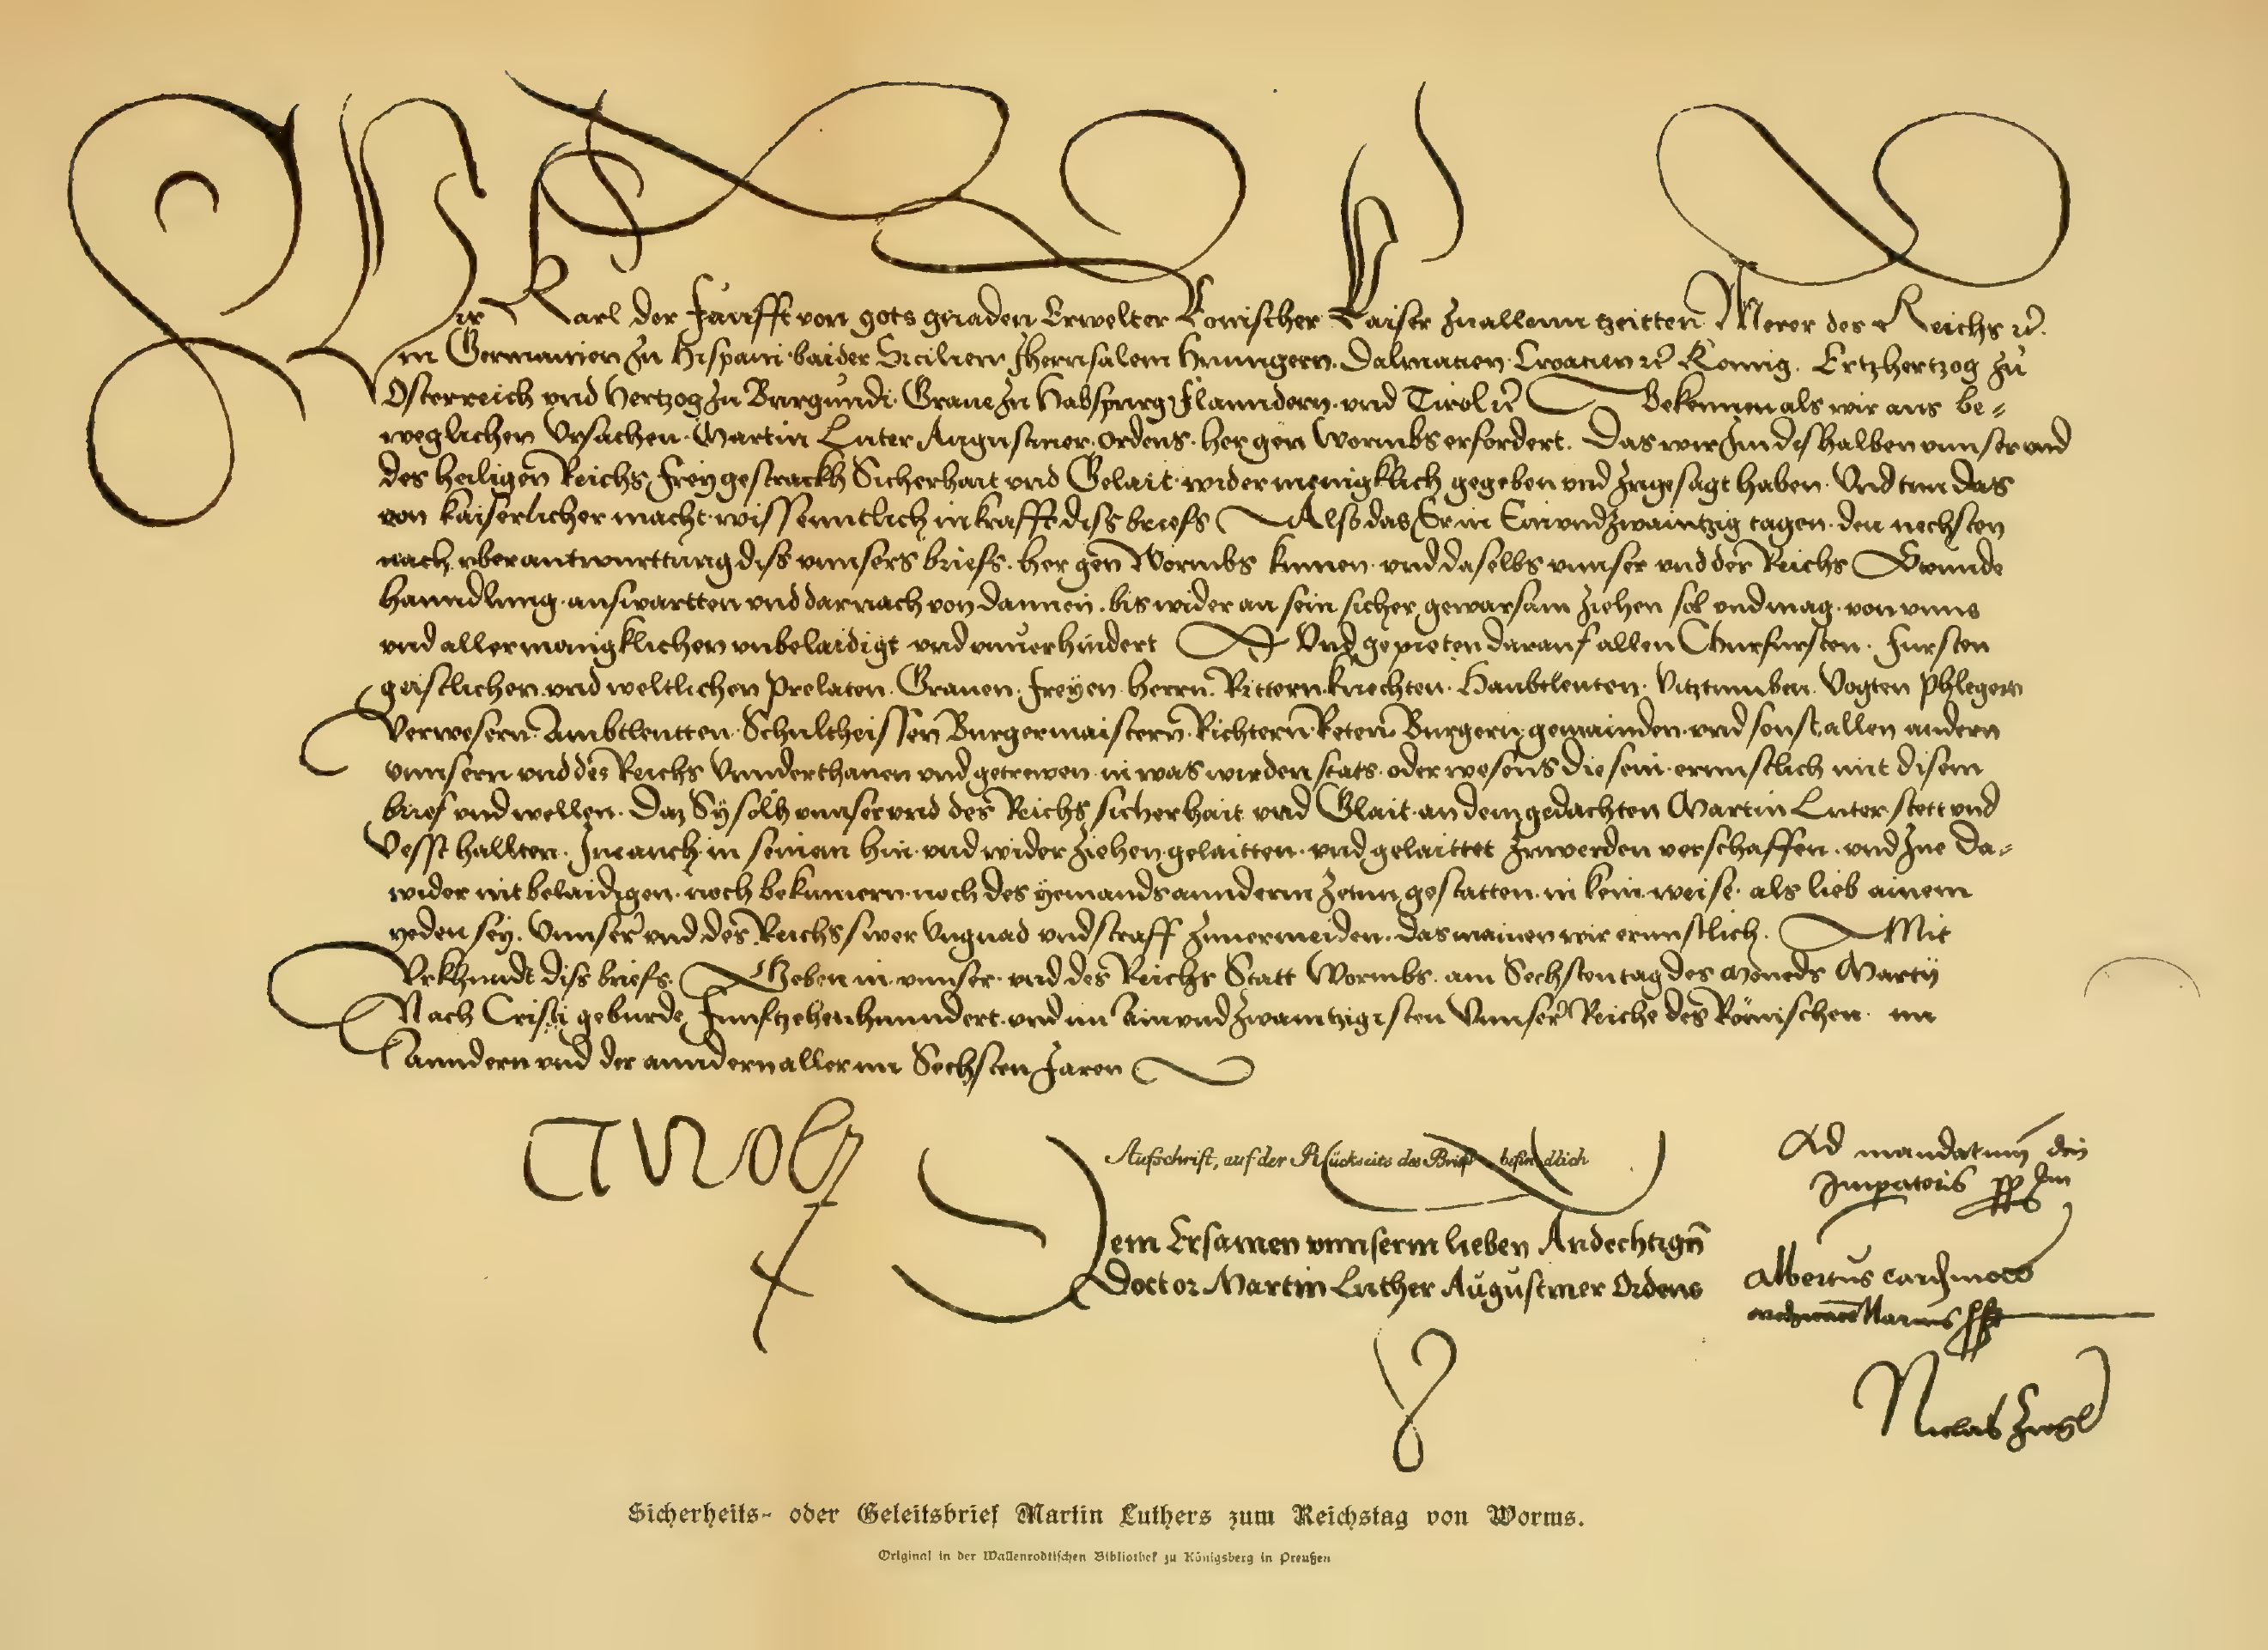 Wir Karl der Funfft von gots gnaden Erwelter Romischer Kaiser zuallenn tzeitten Merer des Reichs ꝛc.
in Germanien zu Hispani· baider Sicilien Jherusalem Hunngern· Dalmatien· Croatien ꝛc Konig· Ertzhertzog zu
Osterreich vnd Hertzog zu Burgundi· Graue zu Habspurg Flanndern· vnd Tirol ꝛc Bekennen als wir aus be⸗
weglichen Vrsachen· Martin Luter Augustiner· ordens· her gen Wormbs erfordert. Das wir Im dishalben vnnser vnd
des heiligen Reichs, frey gestrackh Sicherhait vnd Gelait· wider menigklich gegeben vnd zugesagt haben· Vnd tun das
von kaiserlicher macht· wissenntlich in krafft diss briefs Also das Er in Ein vnd zwaintzig tagen· den nechsten
nach vberantwurttung diss vnnsers briefs· her gen Wormbs kumen· vnd daselbs vnnser vnd des Reichs Stennde
hanndlung· auswartten vnd darnach von dannen· bis wider an sein sicher gewarsam ziehen sol vnd mag· von vnns
vnd allermenigklichen vnbelaidigt vnd vnuerhindert Vnd gepieten darauf allen Churfursten· Fursten
geistlichen vnd weltlichen Prelaten· Grauen· Freyen· Herrn· Rittern· Knechten· Haubtleuten· Vitztumben· Vogten Phlegern
Verwesern· Ambtleutten· Schultheissen Burgermaistern· Richtern· Reten· Burgern, gemainden· vnd sonst allen andern
vnnsern vnd des Reichs Vnnderthanen vnd getrewen· in was wirden stats· oder wesens die sein· ernnstlich mit disem
brief vnd wellen· Daz Sy solh vnnser vnd des Reichs sicherhait vnd Glait· an dem gedachten Martin Luter stett vnd
Vesst hallten· Ine auch in seinem hin· vnd wider ziehen gelaitten· vnd gelaittet zuwerden verschaffen· vnd Ine da⸗
wider nit belaidigen· noch bekumern· noch des yemands annderm zetun gestatten· in kein weise· als lieb ainem
yeden sey· Vnnser vnd des Reichs swer Vngnad vnd straff zuuermeiden· Das mainen wir ernnstlich. Mit
Vrkhundt diss briefs· Geben in vnnser· vnd des Reichs Statt Wormbs· am Sechsten tag des moneds Martij
Nach Cristi geburde, Funftzehenhunndert· vnd im Ainvndzwaintzigisten Vnnser Reiche des Römischen· im
anndern vnd der anndern aller im Sechsten Jaren
Carolus
Aufschrift, auf der Rückseite des Briefs befindlich
Dem Ersamen vnnserm lieben Andechtigñ
Doctor Martin Luther Augustiner Ordens
Ad mandatum dñi
Imperatoris ppm
Albertus cardinal
Niclas Ziegl
Sicherheits- oder Geleitsbrief Martin Luthers zum Reichstag von Worms.
Original in der Wallenrodtischen Bibliothek zu Königsberg in Preußen